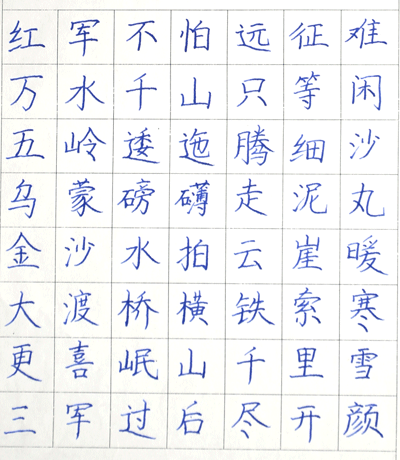 红军不怕远征难
万水千山只等闲
五岭逶迤腾细沙
乌蒙磅礴走泥丸
金沙水拍云崖暖
大渡桥横铁索寒
更喜岷山千里雪
三军过后尽开颜